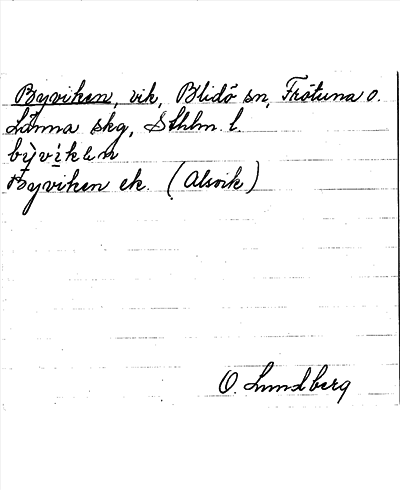 Byviken, vik, Blidö sn, Frötuna o.
Länna skg, Sthlm l.
bỳvìken
Byviken ek. (Alsvik)
O. Lundberg